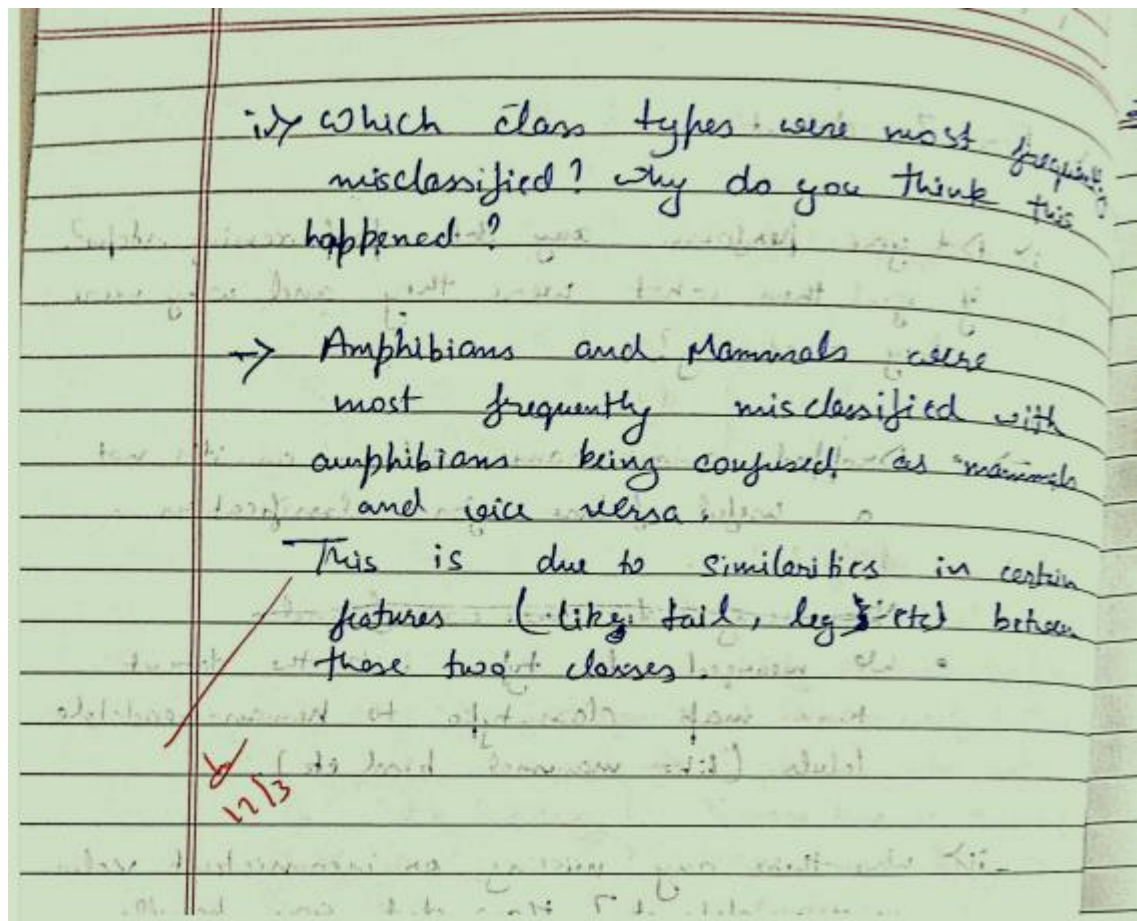 iv> Which class types were most frequently
misclassified? Why do you think this
happened?
-> Amphibians and Mammals were
most frequently misclassified with
amphibians being confused as mammals
and vice versa.
This is due to similarities in certain
features (like tail, leg etc) between
these two classes.
12/3